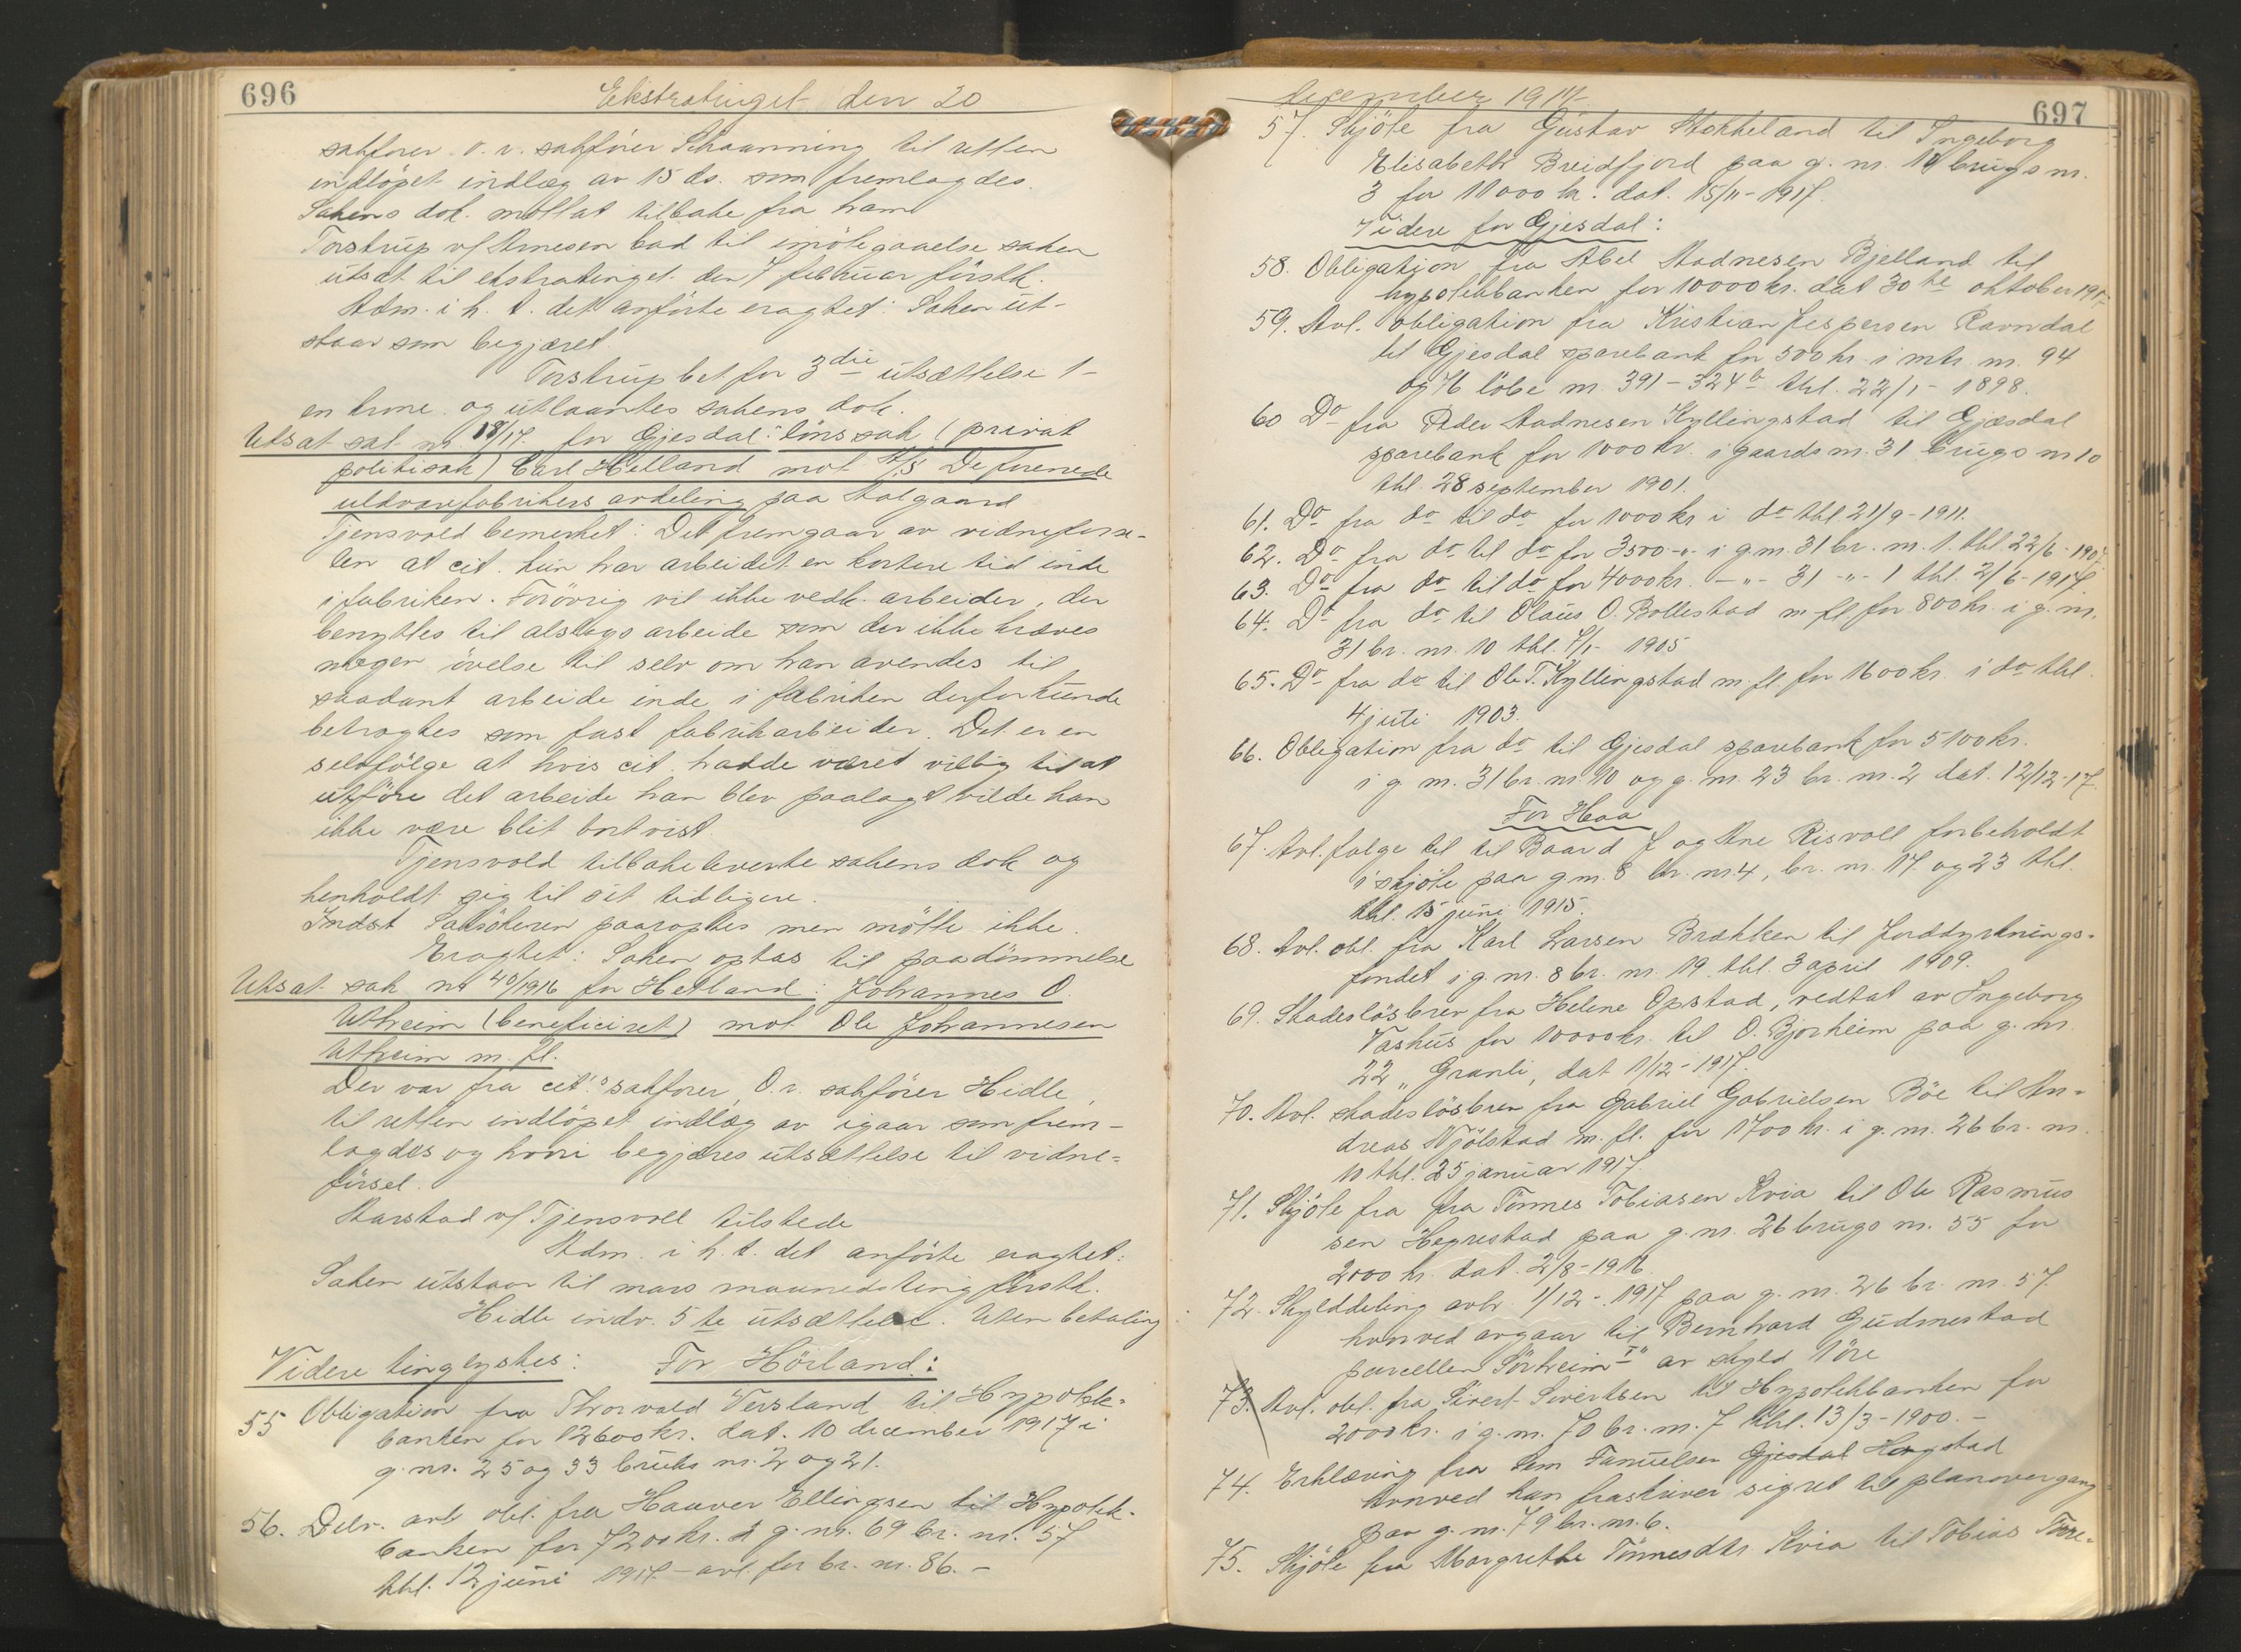 696
Ekstratinget den 20
sakfører O. r. sakfører Schaanning til retten
indløpet indlæg av 15 ds. som fremlagdes.
Sakens dok. mottat tilbake fra ham
Torstrup v/ Arnesen bad til imøtegaaelse saken
utsat til ekstratinget den 7 februar førstk.
Adm. i h. t. det anførte eragtet: Saken ut-
staar som begjæret.
Torstrup bet for 3die utsættelse 1-
en krone og utlaantes sakens dok.
Utsat sak nr. 18/17 for Gjesdal: lønssak (privat
politisak) Carl Helland mot A/S De forenede
uldvarefabrikers avdeling paa Aalgaard
Tjensvold bemerket: Det fremgaar av vidneførse-
len at cit. kun har arbeidet en kortere tid inde
i fabriken. Forøvrig vil ikke vedk. arbeider, der
benyttes til alslags arbeide som der ikke kræves
nogen øvelse til selv om han avendes til
saadant arbeide inde i fabriken derfor kunde
betragtes som fast fabrikarbeider. Det er en
selvfølge at hvis cit. hadde været villig til at
utføre det arbeide han blev paalagt vilde han
ikke være blit bortvist.
Tjensvold tilbakeleverte sakens dok og
henholdt sig til sit tidligere.
Indst Saksøkeren paaroptes men møtte ikke.
Eragtet: Saken optas til paadømmelse
Utsat sak nr 40/1916 for Hetland: Johannes O.
Utheim (beneficiret) mot Ole Johannesen
Utheim m. fl.
Der var fra cit's sakfører, O. r. sakfører Hidle,
til retten indløpet indlæg av igaar som frem-
lagdes og hvori begjæres utsættelse til vidne-
førsel.
Aarstad v/ Tjensvoll tilstede
Adm. i h. t. det anførte eragtet:
Saken utstaar til mars maanedsting førstk.
Hidle indv. 5te utsættelse. Uten betaling
Videre tinglystes: For Høiland:
55 Obligation fra Thorvald Versland til Hypothek-
banken for 12600 kr. dat. 10 december 1917 i
g. nr. 25 og 33 bruks nr. 2 og 21.
56. Delv. avl obl. fra Haaver Ellingsen til Hypothek-
banken for 7200 kr. i g. nr. 69 br. nr. 57
thl. 12 juni 1917 - avl. for br. nr. 86. -
december 1917
697
57. Skjøte fra Gustav Stokkeland til Ingeborg
Elisabeth Breidfjord paa g. nr. 11 brugs nr.
3 for 11000 kr. dat. 15/11 - 1917.
Videre for Gjesdal:
58. Obligation fra Abel Aadnesen Bjelland til
hypotekbanken for 10000 kr. dat 30te oktober 1917
59. Avl. obligation fra Kristian Jespersen Ravndal
til Gjesdal sparebank for 500 kr. i mtr. nr. 94
og 76 løbe nr. 391 - 324b thl. 22/1 - 1898.
60 Do fra Peder Aadnesen Kyllingstad til Gjæsdal
sparebank for 1000 kr. i gaards nr. 31 brugs nr 10
thl. 28 september 1901.
61. Do fra do til do for 1000 kr i do thl 21/9 - 1911.
62. Do fra do til do for 3500 -"- i g nr. 31 br. nr. 1. thl. 22/6 - 1907
63. Do fra do til do for 4000 kr. -"- 31 -"- 1 thl. 2/6 - 1917
64. Do fra do til Olaus O. Bollestad m fl for 800 kr. i g. nr.
31 br. nr. 10 thl. 7/1 - 1905
65. Do fra do til Ole T. Kyllingstad m. fl for 1600 kr. i do thl.
4 juli 1903.
66. Obligation fra do til Gjesdal sparebank for 5100 kr.
i g nr. 31 br. nr 10 og g. nr. 23 br. nr. 2 dat. 12/12 - 17.
For Haa
67. Avl. følge til til Baard J og Ane Risvoll forbeholdt
i skjøte paa g nr. 8 br. nr. 4, br. nr. 17 og 23 thl.
thl. 15 juni 1915.
68. Avl. obl. fra Karl Larsen Brækken til Jorddyrknings-
fondet i g. nr. 8 br. nr. 19. thl. 3 april 1909.
69. Skadesløsbrev fra Helene Opstad, vedtat av Ingeborg
Vashus for 10000 kr. til O. Bjorheim paa g. nr.
22 „ Granli, dat 1/12 - 1917.
70. Avl. skadesløsbrev fra Gabriel Gabrielsen Bøe til An-
dreas Njølstad m. fl. for 1700 kr. i g. nr. 26 br. nr.
10 thl. 25 januar 1917.
71. Skjøte fra fra Tønnes Tobiasen Kvia til Ole Rasmus
sen Hegrestad paa g. nr. 26 brugs nr. 55 for
2000 kr. dat. 2/8 - 1916.
72. Skylddeling avh. 1/12 - 1917 paa g. nr. 26 br. nr. 57
hvorved avgaar til Bernhard Gudmestad
parcellen Sørheim I" av skyld 1 øre
73. Avl. obl. fra Sivert Sivertsen til Hypotekbanken for
2000 kr. i g. nr. 70 br. nr. 7 thl. 13/3 - 1900. -
74. Erklæring fra Sem Samuelsen Gjesdal Haugstad
hvorved han fraskriver sig ret til planovergang
paa g. nr. 79 br. nr. 6.
75. Skjøte fra Margrethe Tønnesdtr. Kvia til Tobias Tore-